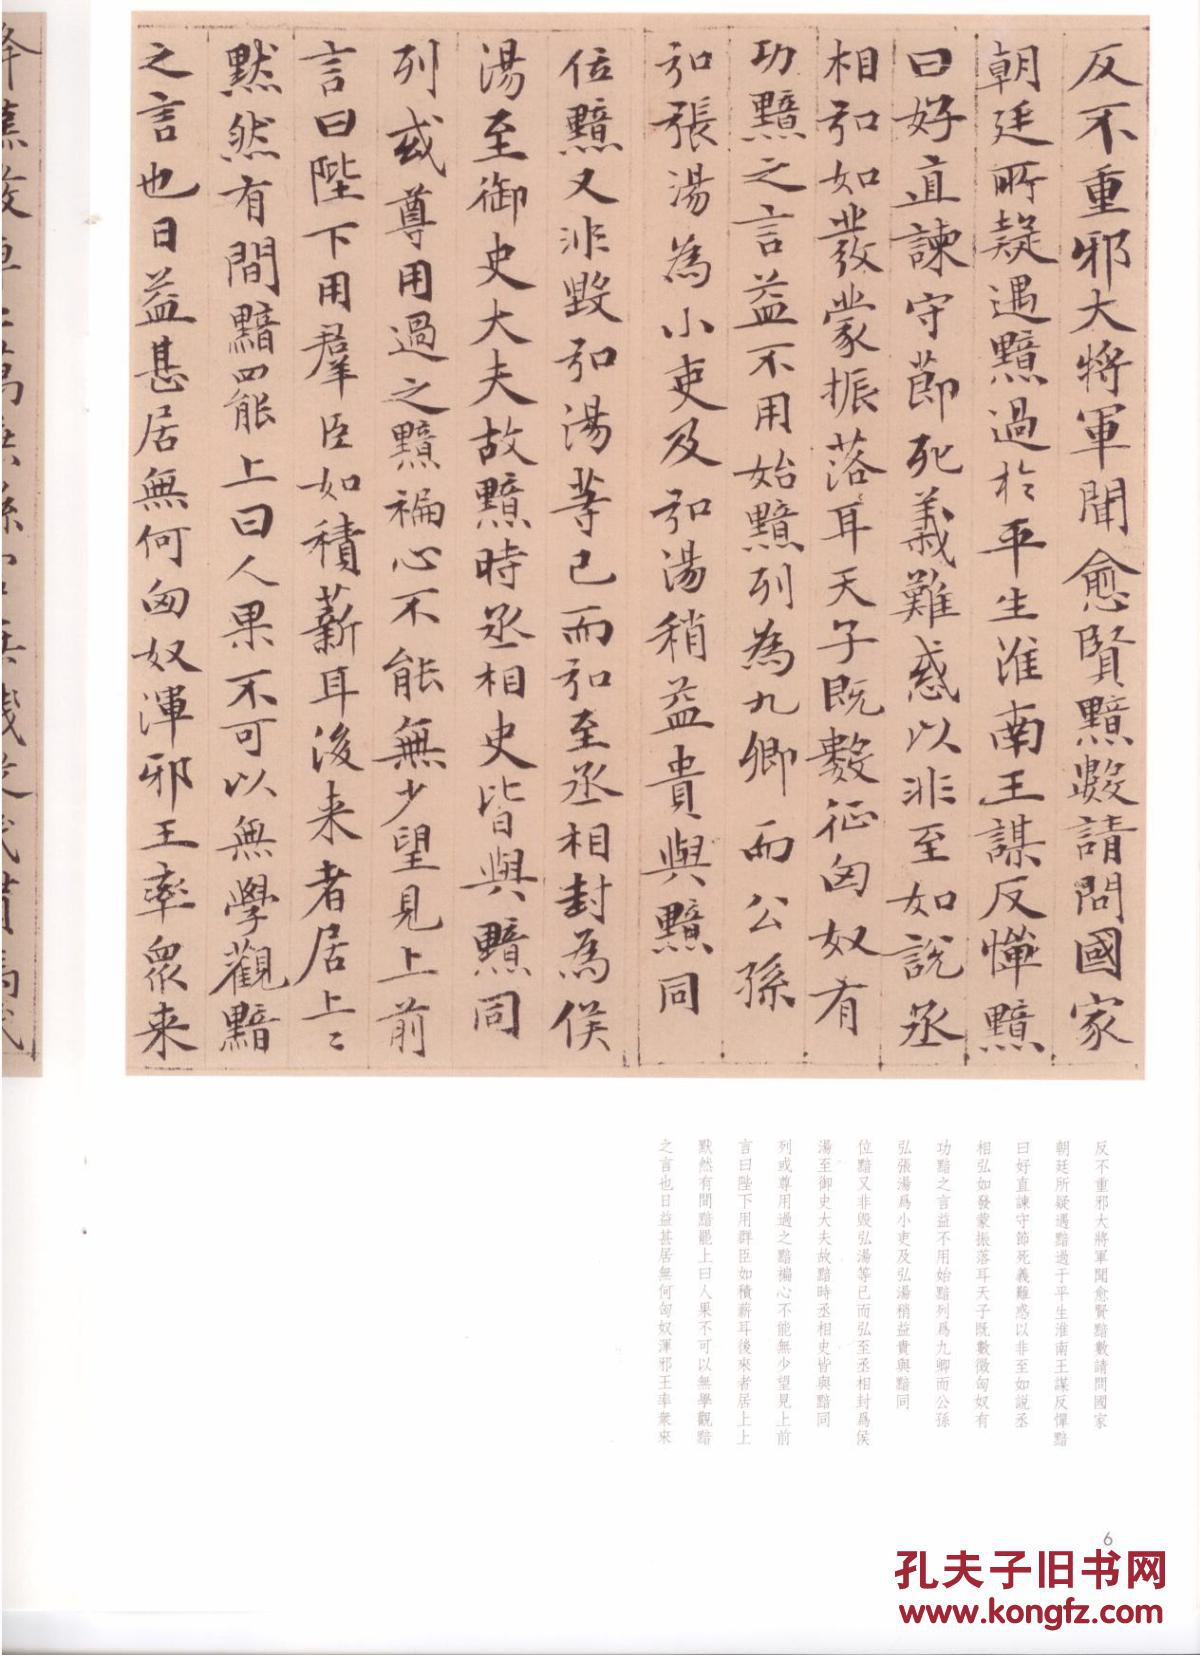 反不重邪大將軍聞愈賢黯數請問國家
朝廷所疑遇黯過於平生淮南王謀反憚黯
曰好直諫守節死義難惑以非至如說丞
相弘如發蒙振落耳天子既數征匈奴有
功黯之言益不用始黯列為九卿而公孫
弘張湯為小吏及弘湯稍益貴與黯同
位黯又非毀弘湯等已而弘至丞相封為侯
湯至御史大夫故黯時丞相史皆與黯同
列或尊用過之黯褊心不能無少望見上前
言曰陛下用羣臣如積薪耳後来者居上〻
黙然有間黯罷上曰人果不可以無學觀黯
之言也日益甚居無何匈奴渾邪王率衆来
反不重邪大將軍聞愈賢黯數請問國家
朝廷所疑遇黯過于平生淮南王謀反憚黯
曰好直諫守節死義難惑以非至如説丞
相弘如發蒙振落耳天子既數徵匈奴有
功黯之言益不用始黯列爲九卿而公孫
弘張湯爲小吏及弘湯稍益貴與黯同
位黯又非毀弘湯等已而弘至丞相封爲侯
湯至御史大夫故黯時丞相史皆與黯同
列或尊用過之黯褊心不能無少望見上前
言曰陛下用群臣如積薪耳後來者居上上
默然有間黯罷上曰人果不可以無學觀黯
之言也日益甚居無何匈奴渾邪王率衆來
6
孔夫子旧书网
www.kongfz.com